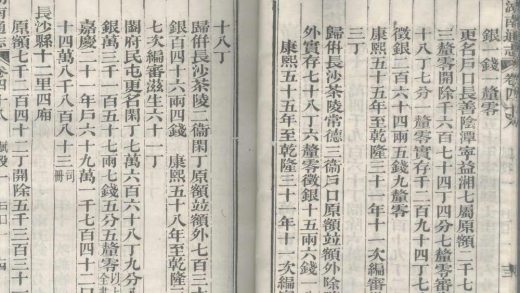 湖南通志 卷四十八
銀一錢 釐零
更名戶口長善陰潭寧益湘七屬原額二千七
三釐零開除千六百七十四丁四分七釐零
十八丁七分 釐零實存千二百九十四丁七
徵銀二百六十四兩五錢九釐零
康熙五十五年至乾隆三十一年十一次編審
三丁
歸併長沙茶陵常德三衞戶口原額竝額外除
外實存七十八丁六釐零徵銀十五兩六錢一
康熙五十五年至乾隆三十一年十一次編
十八丁
歸併長沙茶陵二衞閑丁原額竝額外七百三十
銀百四十六兩四錢 康熙五十八年至乾隆三
七次編審滋生六十一丁
闔府民屯更名閑丁七萬六百六十八丁九分
銀萬三千一百五十七兩七錢五分五釐零以上全書
嘉慶二十一年戶六十九萬一千七百四十二口
十四萬八千八百八十三司冊
長沙縣十二里四廂
原額七千二百四十二丁開除五千三百三十一
南通志 卷四十八 賦役一 戶口 十四